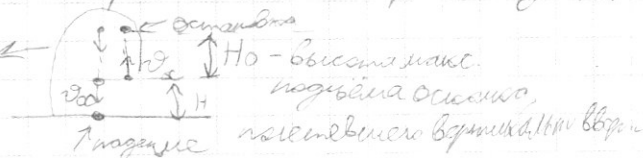 ← остановка
H₀ - высота макс.
подъёма осколка,
H полетевшего вертикально вверх
↑ падение